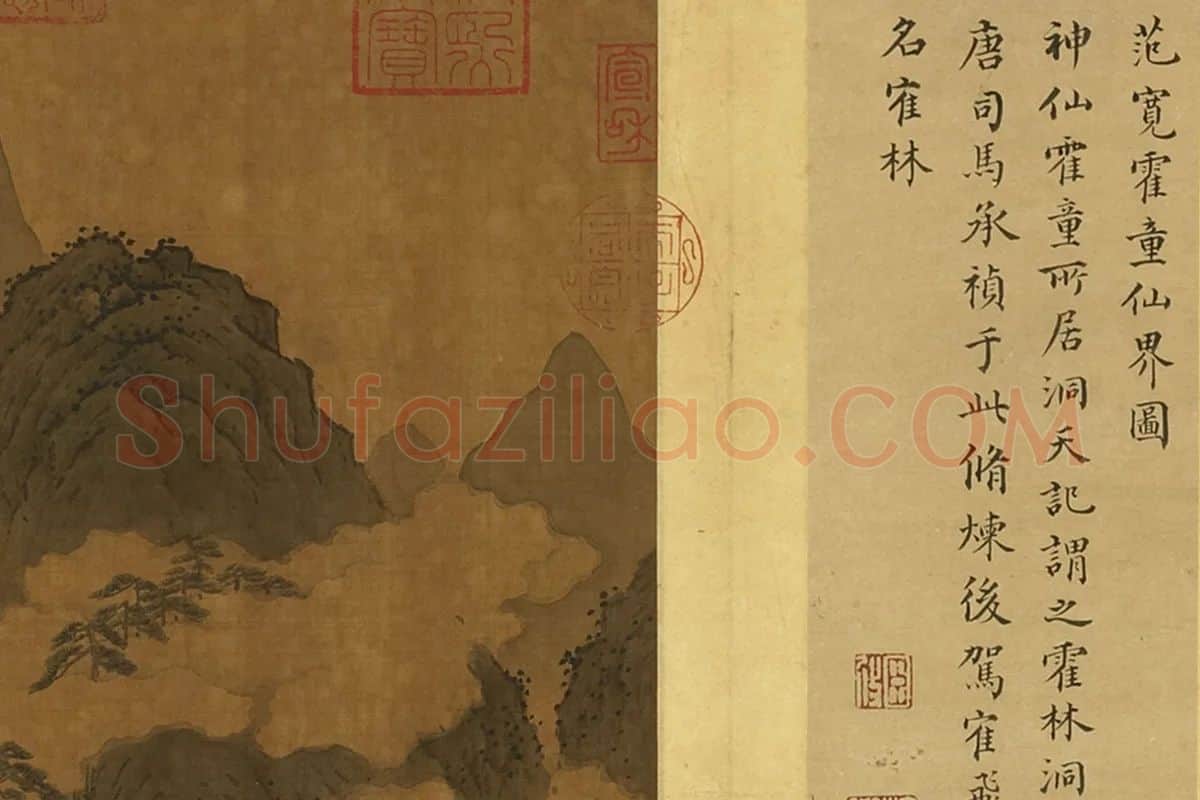 范寬霍童仙界圖
神仙霍童所居洞天記謂之霍林洞
唐司馬承禎于此脩煉後駕寉飛
名寉林
宣和
Shufaziliao.COM